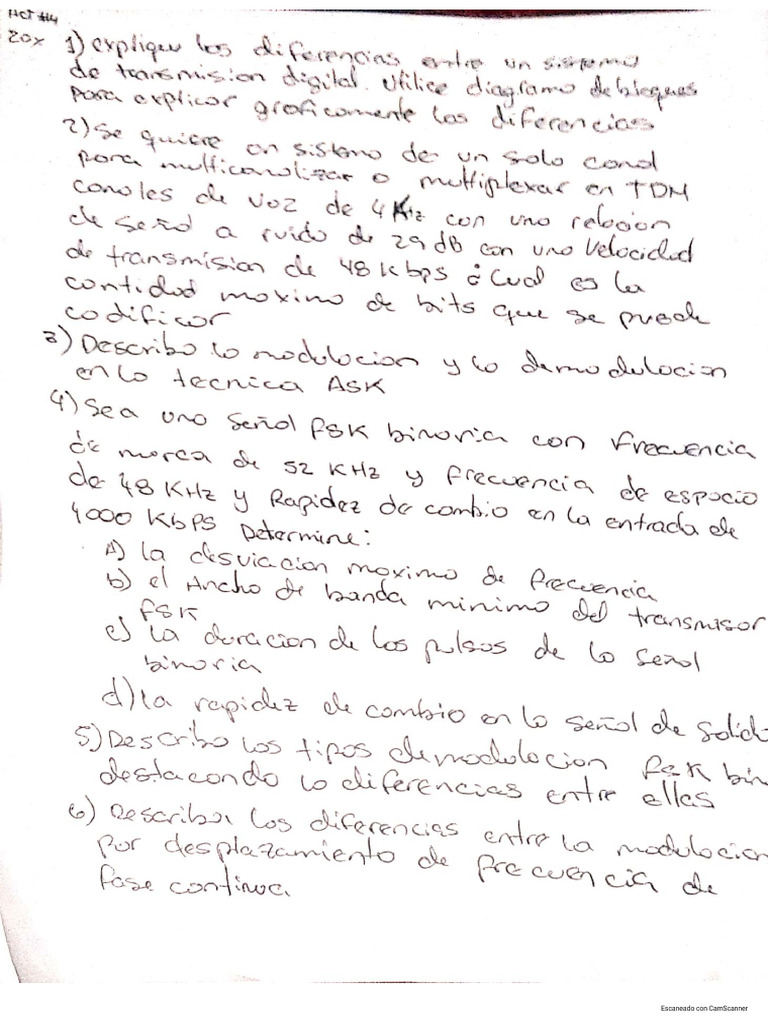 ACT #4
20x 1) explique las diferencias entre un sistema
de transmision digital. Utilice diagrama de bloques
para explicar graficamente las diferencias
2) Se quiere un sistema de un solo canal
para multicanalizar o multiplexar en TDM
canales de voz de 4 KHz con una relacion
de señal a ruido de 29 dB con una velocidad
de transmision de 48 kbps ¿Cual es la
cantidad maxima de bits que se puede
codificar
3) Describa la modulacion y la demodulacion
en la tecnica ASK
4) Sea una señal FSK binaria con frecuencia
de marca de 52 KHz y frecuencia de espacio
de 48 KHz y Rapidez de cambio en la entrada de
4000 Kbps Determine:
A) la desviacion maxima de frecuencia
b) el Ancho de banda minimo del transmisor
FSK
c) la duracion de los pulsos de la señal
binaria
d) la rapidez de cambio en la señal de salida
5) Describa los tipos demodulacion FSK bin
destacando la diferencias entre ellas
6) Describa las diferencias entre la modulacion
por desplazamiento de frecuencia de
fase continua
Escaneado con CamScanner